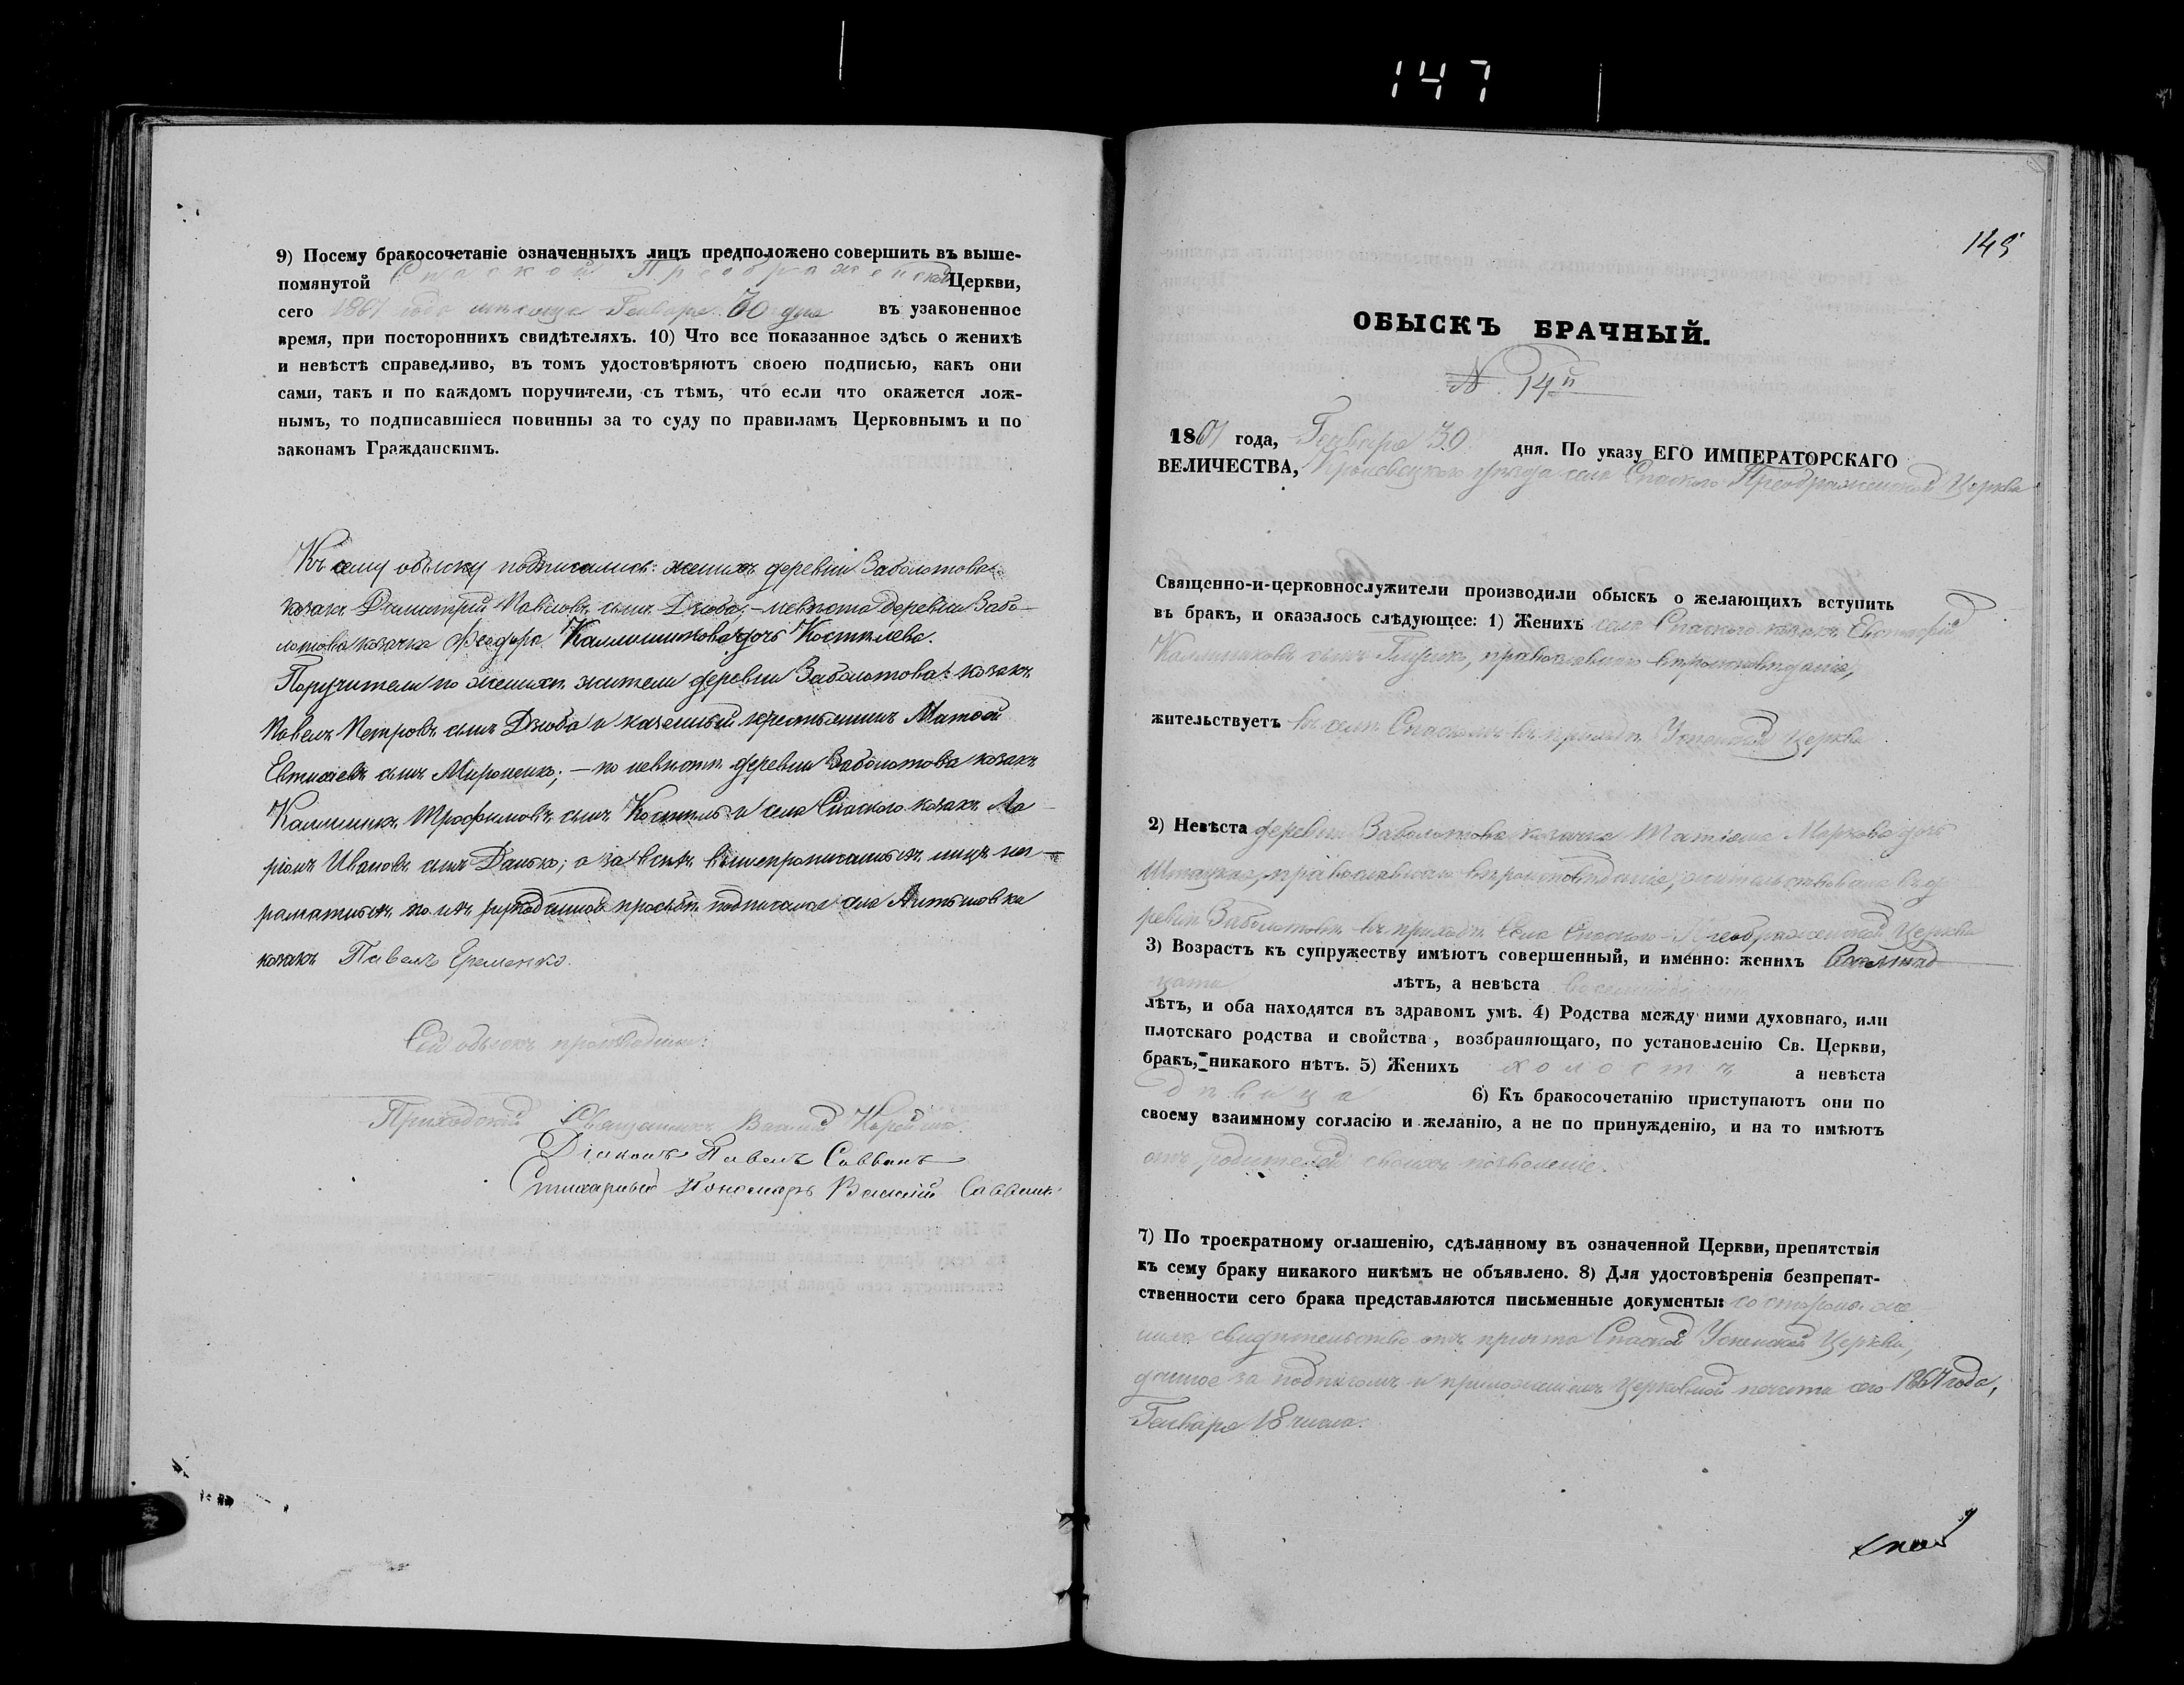 147
9) Посему бракосочетаніе означенныхъ лицъ предположено совершить въ выше-
помянутой Спаской Преображенской Церкви,
сего 1861 года месяца Генваря 30 дня въ узаконенное
время, при постороннихъ свидѣтеляхъ. 10) Что все показанное здѣсь о женихѣ
и невѣстѣ справедливо, въ томъ удостовѣряютъ своею подписью, какъ они
сами, такъ и по каждомъ поручители, съ тѣмъ, что если что окажется лож-
нымъ, то подписавшіеся повинны за то суду по правиламъ Церковнымъ и по
законамъ Гражданскимъ.
Къ сему обыску подписались: женихъ деревни Заболотова
козакъ Димитрій Павловъ сынъ Дзюба, – невѣста деревни Забо-
лотова козачка Феодора Каллиникова дочь Костылева.
Поручители по женихѣ жители деревни Заболотова: козакъ
Павелъ Петровъ сынъ Дзюба и казенный крестьянинъ Матвей
Евтихіевъ сынъ Мироненко; – по невѣстѣ деревни Заболотова козакъ
Каллиникъ Трофимовъ сынъ Костыль и села Спаского козакъ Ла
ріонъ Ивановъ сынъ Данько; а за всѣхъ вышепрописанныхъ лицъ не-
грамотныхъ по ихъ рукоданной прозьбѣ подписался
козакъ Павелъ Еременко.
Сей обыскъ производили:
Приходскій Священникъ Василій
Діаконъ Павелъ Саввинъ
Стихарный Пономарь Василій Саввинъ
145
ОБЫСКЪ БРАЧНЫЙ.
№ 14й
1861 года, Генваря 30 дня. По указу ЕГО ИМПЕРАТОРСКАГО
ВЕЛИЧЕСТВА, Кролевецкого уѣзда села Спаского Преображенской Церкви
Священно-и-церковнослужители производили обыскъ о желающихъ вступить
въ бракъ, и оказалось слѣдующее: 1) Женихъ села Спаского козакъ Евстафій
Каллиниковъ сынъ православнаго вѣроисповѣданія,
жительствуетъ въ селѣ Спаскомъ въ приходѣ Успенской Церкви.
2) Невѣста деревни Заболотова козачка Татіана Маркова дочь
православнаго вѣроисповѣданія, жительствовала въ де
ревнѣ Заболотовѣ въ приходѣ села Спаского Преображенской Церкви
3) Возрастъ къ супружеству имѣютъ совершенный, и именно: женихъ
цати лѣтъ, а невѣста восемнадцати
лѣтъ, и оба находятся въ здравомъ умѣ. 4) Родства между ними духовнаго, или
плотскаго родства и свойства, возбраняющаго, по установленію Св. Церкви,
бракъ, никакого нѣтъ. 5) Женихъ холостъ а невѣста
дѣвица 6) Къ бракосочетанію приступаютъ они по
своему взаимному согласію и желанію, а не по принужденію, и на то имѣютъ
отъ родителей своихъ позволеніе.
7) По троекратному оглашенію, сдѣланному въ означенной Церкви, препятствія
къ сему браку никакого никѣмъ не объявлено. 8) Для удостовѣренія безпрепят-
ственности сего брака представляются письменные документы: со стороны же
ниха свидѣтельство отъ причта Спаской Успенской Церкви,
данное за подписомъ и приложеніемъ Церковной печати сего 1861 года,
Генваря 18 числа.